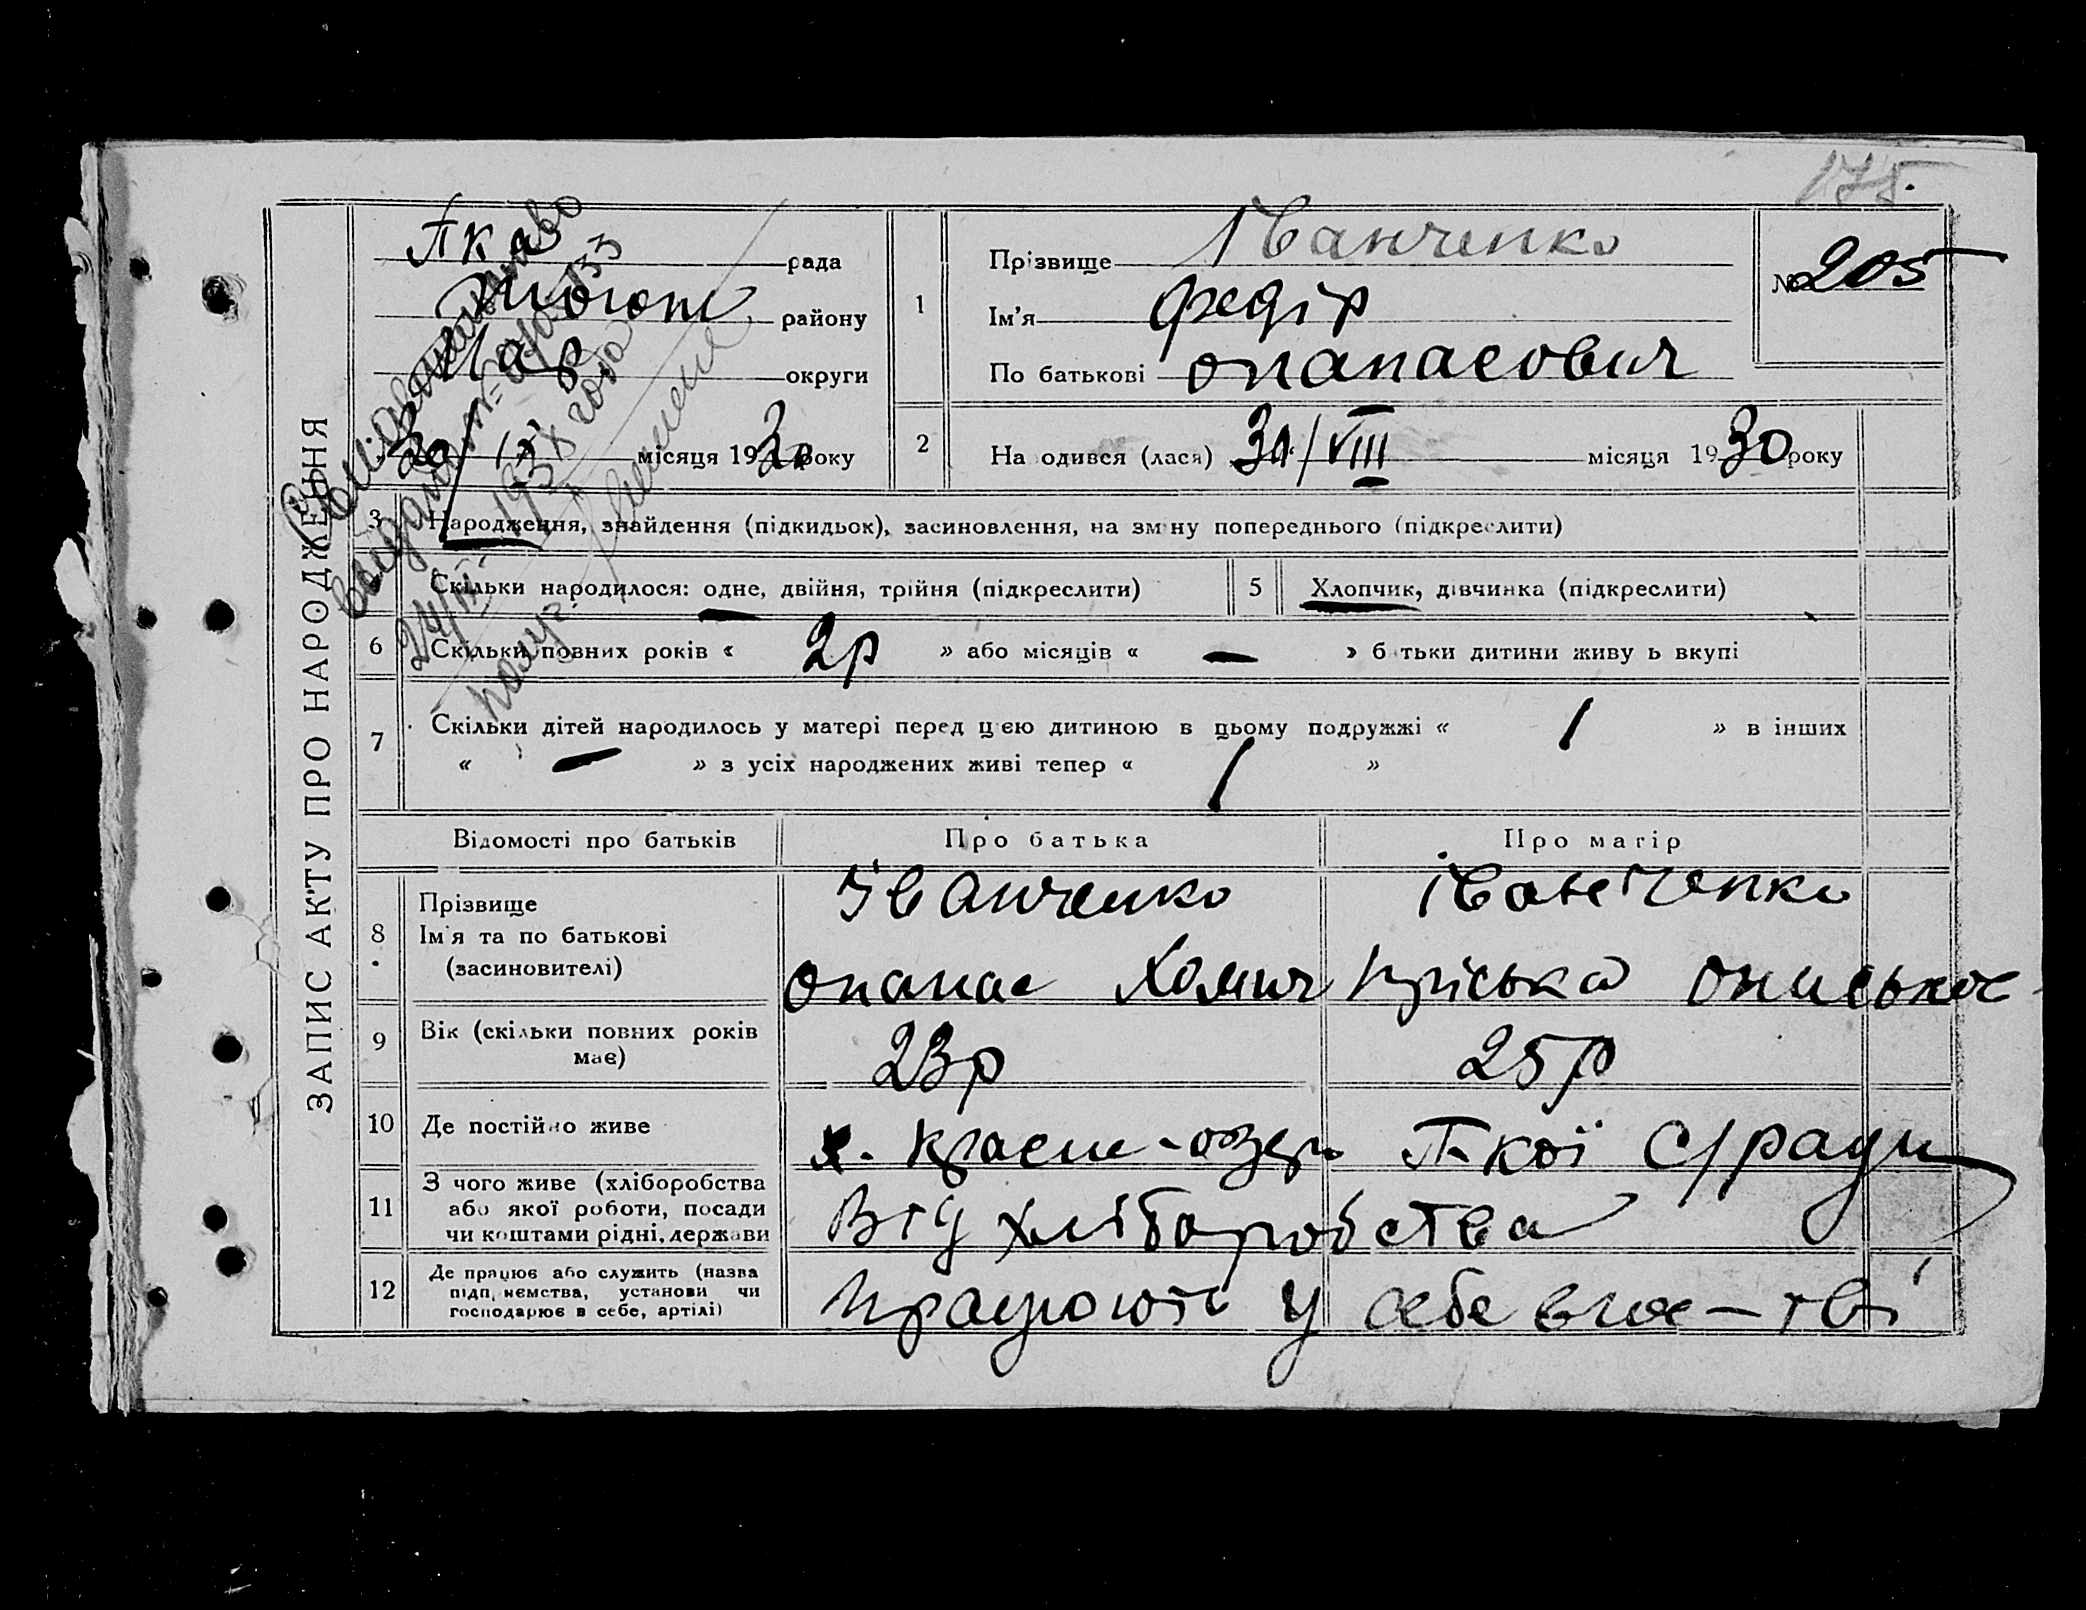 175.
ЗАПИС АКТУ ПРО НАРОДЖЕННЯ
рада
району
округи
30/ІХ місяця 1930 року
1
Прізвище Іванченко
Ім'я Федір
По батькові Опанасович
№ 205
2
Народився (лася) 30/VIII місяця 1930 року
3 Народження, знайдення (підкидьок), засиновлення, на зміну попереднього (підкреслити)
Скільки народилося: одне, двійня, трійня (підкреслити)
5 Хлопчик, дівчинка (підкреслити)
6 Скільки повних років « 2р » або місяців « — » батьки дитини живуть вкупі
7 Скільки дітей народилось у матері перед цією дитиною в цьому подружжі « 1 » в інших
« — » з усіх народжених живі тепер « 1 »
Відомості про батьків Про батька Про матір
8 Прізвище
Ім'я та по батькові
(засиновителі)
Іванченко
Опанас Хомич
Іванченко
Пріська Ониськов
9 Вік (скільки повних років
має)
23р
25р
10 Де постійно живе
х. Красне-озер. П-кої с/ради
11 З чого живе (хліборобства
або якої роботи, посади
чи коштами рідні, держави
Від хліборобства
12 Де працює або служить (назва
підприємства, установи чи
господарює в себе, артілі)
Працюють у себе